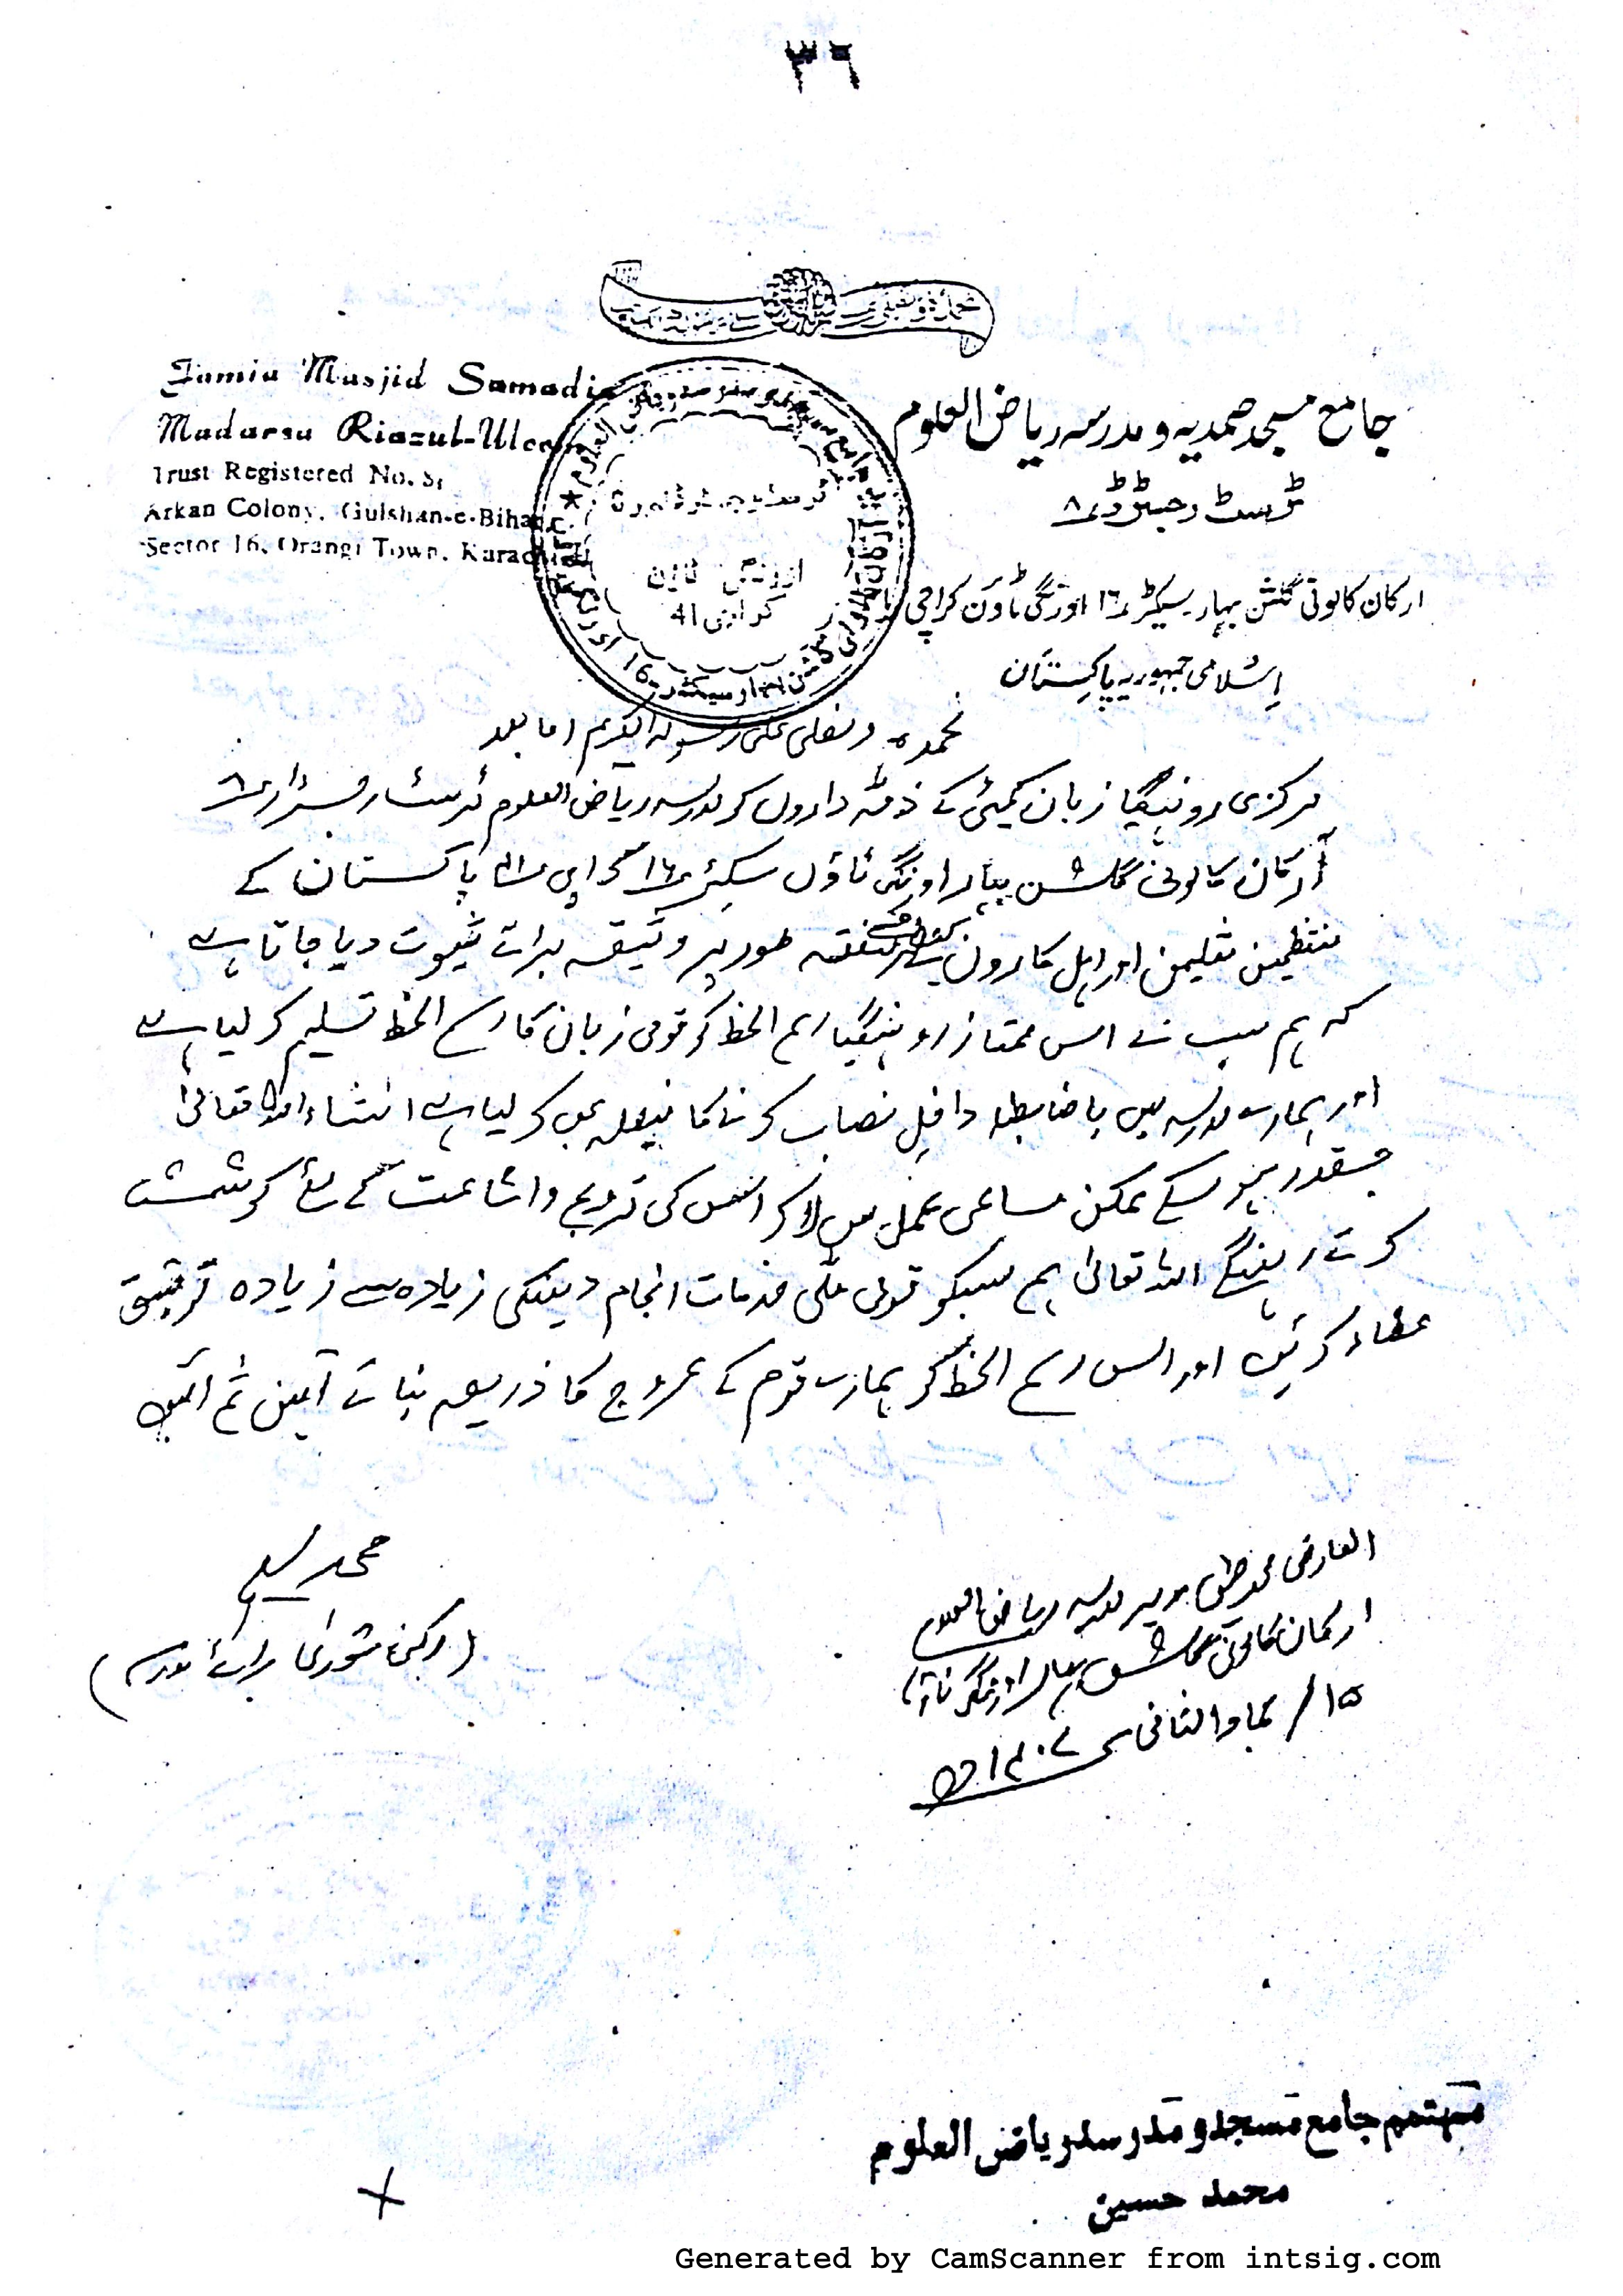 ٣٦
Jamia Masjid Samadia
Madarsa Riazul-Uloom
Trust Registered No. 8
Arkan Colony, Gulshan-e-Bihar,
Sector 16, Orangi Town, Karachi
جامع مسجد صمدیہ و مدرسہ ریاض العلوم
ٹرسٹ رجسٹرڈ ۸
ارکان کالونی گلشن بہار سیکٹر ۱٦ اورنگی ٹاؤن کراچی
اِسْلامی جمہوریہ پاکِستان
اورنگی ٹاؤن
کراچی 41
نحمدہ و نصلی علی رسولہ الکریم اما بعد
مرکزی روہنگیا زبان کمیٹی کے ذمہ داروں کو مدرسہ ریاض العلوم ٹرسٹ رجسٹرار ۸
آرکان کالونی گلشن بہار اورنگی ٹاؤن سیکٹر ۱٦ کراچی ۴۱ پاکستان کے
منتظمین معلیمن اور اہل کاروں کیطرف سے متفقہ طور پر وثیقہ برات ثبوت دیا جاتا ہے
کہ ہم سب نے اس ممتاز روہنگیا رسم الخط کو قومی زبان کا رسم الخط تسلیم کر لیا ہے
اور ہمارے مدرسہ میں باضابطہ داخلِ نصاب کرنا کا فیصلہ بھی کر لیا ہے انشاء اللہ تعالیٰ
جسقدر ہو سکے ممکن مساعی عمل میں لا کر اس کی ترویج و اشاعت کے لئے کوشش
کرتے رہینگے اللہ تعالیٰ ہم سبکو قومی ملی خدمات انجام دینکی زیادہ سے زیادہ توفیق
عطاء کریں اور اس رسم الخط کو ہمارے قوم کے عروج کا ذریعہ بنائے آمین ثم آمین
العارض محمد مدیر مدرسہ ریاض العلوم
ارکان کالونی گلشن بہار اورنگی ٹاؤن
۱۵ / جماد الثانی ۱۴۰۷ھ
محمد سلیم
(رکن شوریٰ برائے مدرسہ)
مہتمم جامع مسجد و مدرسہ ریاض العلوم
محمد حسین
Generated by CamScanner from intsig.com